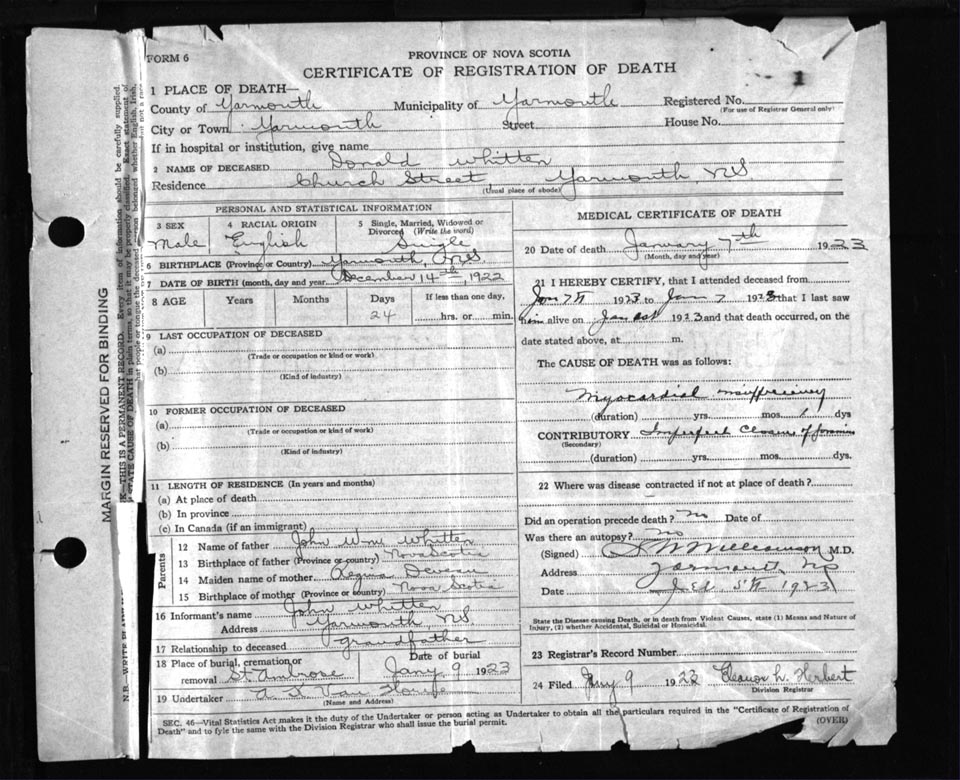 FORM 6
PROVINCE OF NOVA SCOTIA
CERTIFICATE OF REGISTRATION OF DEATH
1
1 PLACE OF DEATH—
County of Yarmouth Municipality of Yarmouth Registered No.
(For use of Registrar General only)
City or Town Yarmouth Street House No.
If in hospital or institution, give name
2 NAME OF DECEASED Donald Whitten
Residence Church Street Yarmouth, NS
(Usual place of abode)
PERSONAL AND STATISTICAL INFORMATION
3 SEX 4 RACIAL ORIGIN 5 Single, Married, Widowed or Divorced (Write the word)
Male English Single
6 BIRTHPLACE (Province or Country) Yarmouth, NS
7 DATE OF BIRTH (month, day and year) December 14th, 1922
8 AGE Years Months Days If less than one day,
24 hrs. or min.
9 LAST OCCUPATION OF DECEASED
(a)
(Trade or occupation or kind or work)
(b)
(Kind of industry)
10 FORMER OCCUPATION OF DECEASED
(a)
(Trade or occupation or kind of work)
(b)
(Kind of industry)
11 LENGTH OF RESIDENCE (In years and months)
(a) At place of death
(b) In province
(c) In Canada (if an immigrant)
Parents
12 Name of father John Wm Whitten
13 Birthplace of father (Province or country) Nova Scotia
14 Maiden name of mother Regina Deveau
15 Birthplace of mother (Province or country) Nova Scotia
16 Informant's name John Whitten
Address Yarmouth NS
17 Relationship to deceased grandfather
18 Place of burial, cremation or removal St. Ambrose Date of burial Jany 9 1923
19 Undertaker Van
(Name and Address)
MEDICAL CERTIFICATE OF DEATH
20 Date of death January 7th 1923
(Month, day and year)
21 I HEREBY CERTIFY, that I attended deceased from
Jan 7th 1923 to Jan 7 1923 that I last saw
him alive on Jan 1923 and that death occurred, on the
date stated above, at m.
The CAUSE OF DEATH was as follows:
Myocardial insufficiency
(duration) yrs. mos. 1 dys
CONTRIBUTORY Imperfect Closure of foramin
(Secondary)
(duration) yrs. mos. dys.
22 Where was disease contracted if not at place of death?
Did an operation precede death? No Date of
Was there an autopsy? No
(Signed) Williamson M.D.
Address Yarmouth, NS
Date 1923
State the Disease causing Death, or in death from Violent Causes, state (1) Means and Nature of
Injury, (2) whether Accidental, Suicidal or Homicidal.
23 Registrar's Record Number
24 Filed Jany 9 1923 Eleanor L. Herbert
Division Registrar
SEC. 46—Vital Statistics Act makes it the duty of the Undertaker or person acting as Undertaker to obtain all the particulars required in the "Certificate of Registration of
Death" and to fyle the same with the Division Registrar who shall issue the burial permit. (OVER)
MARGIN RESERVED FOR BINDING